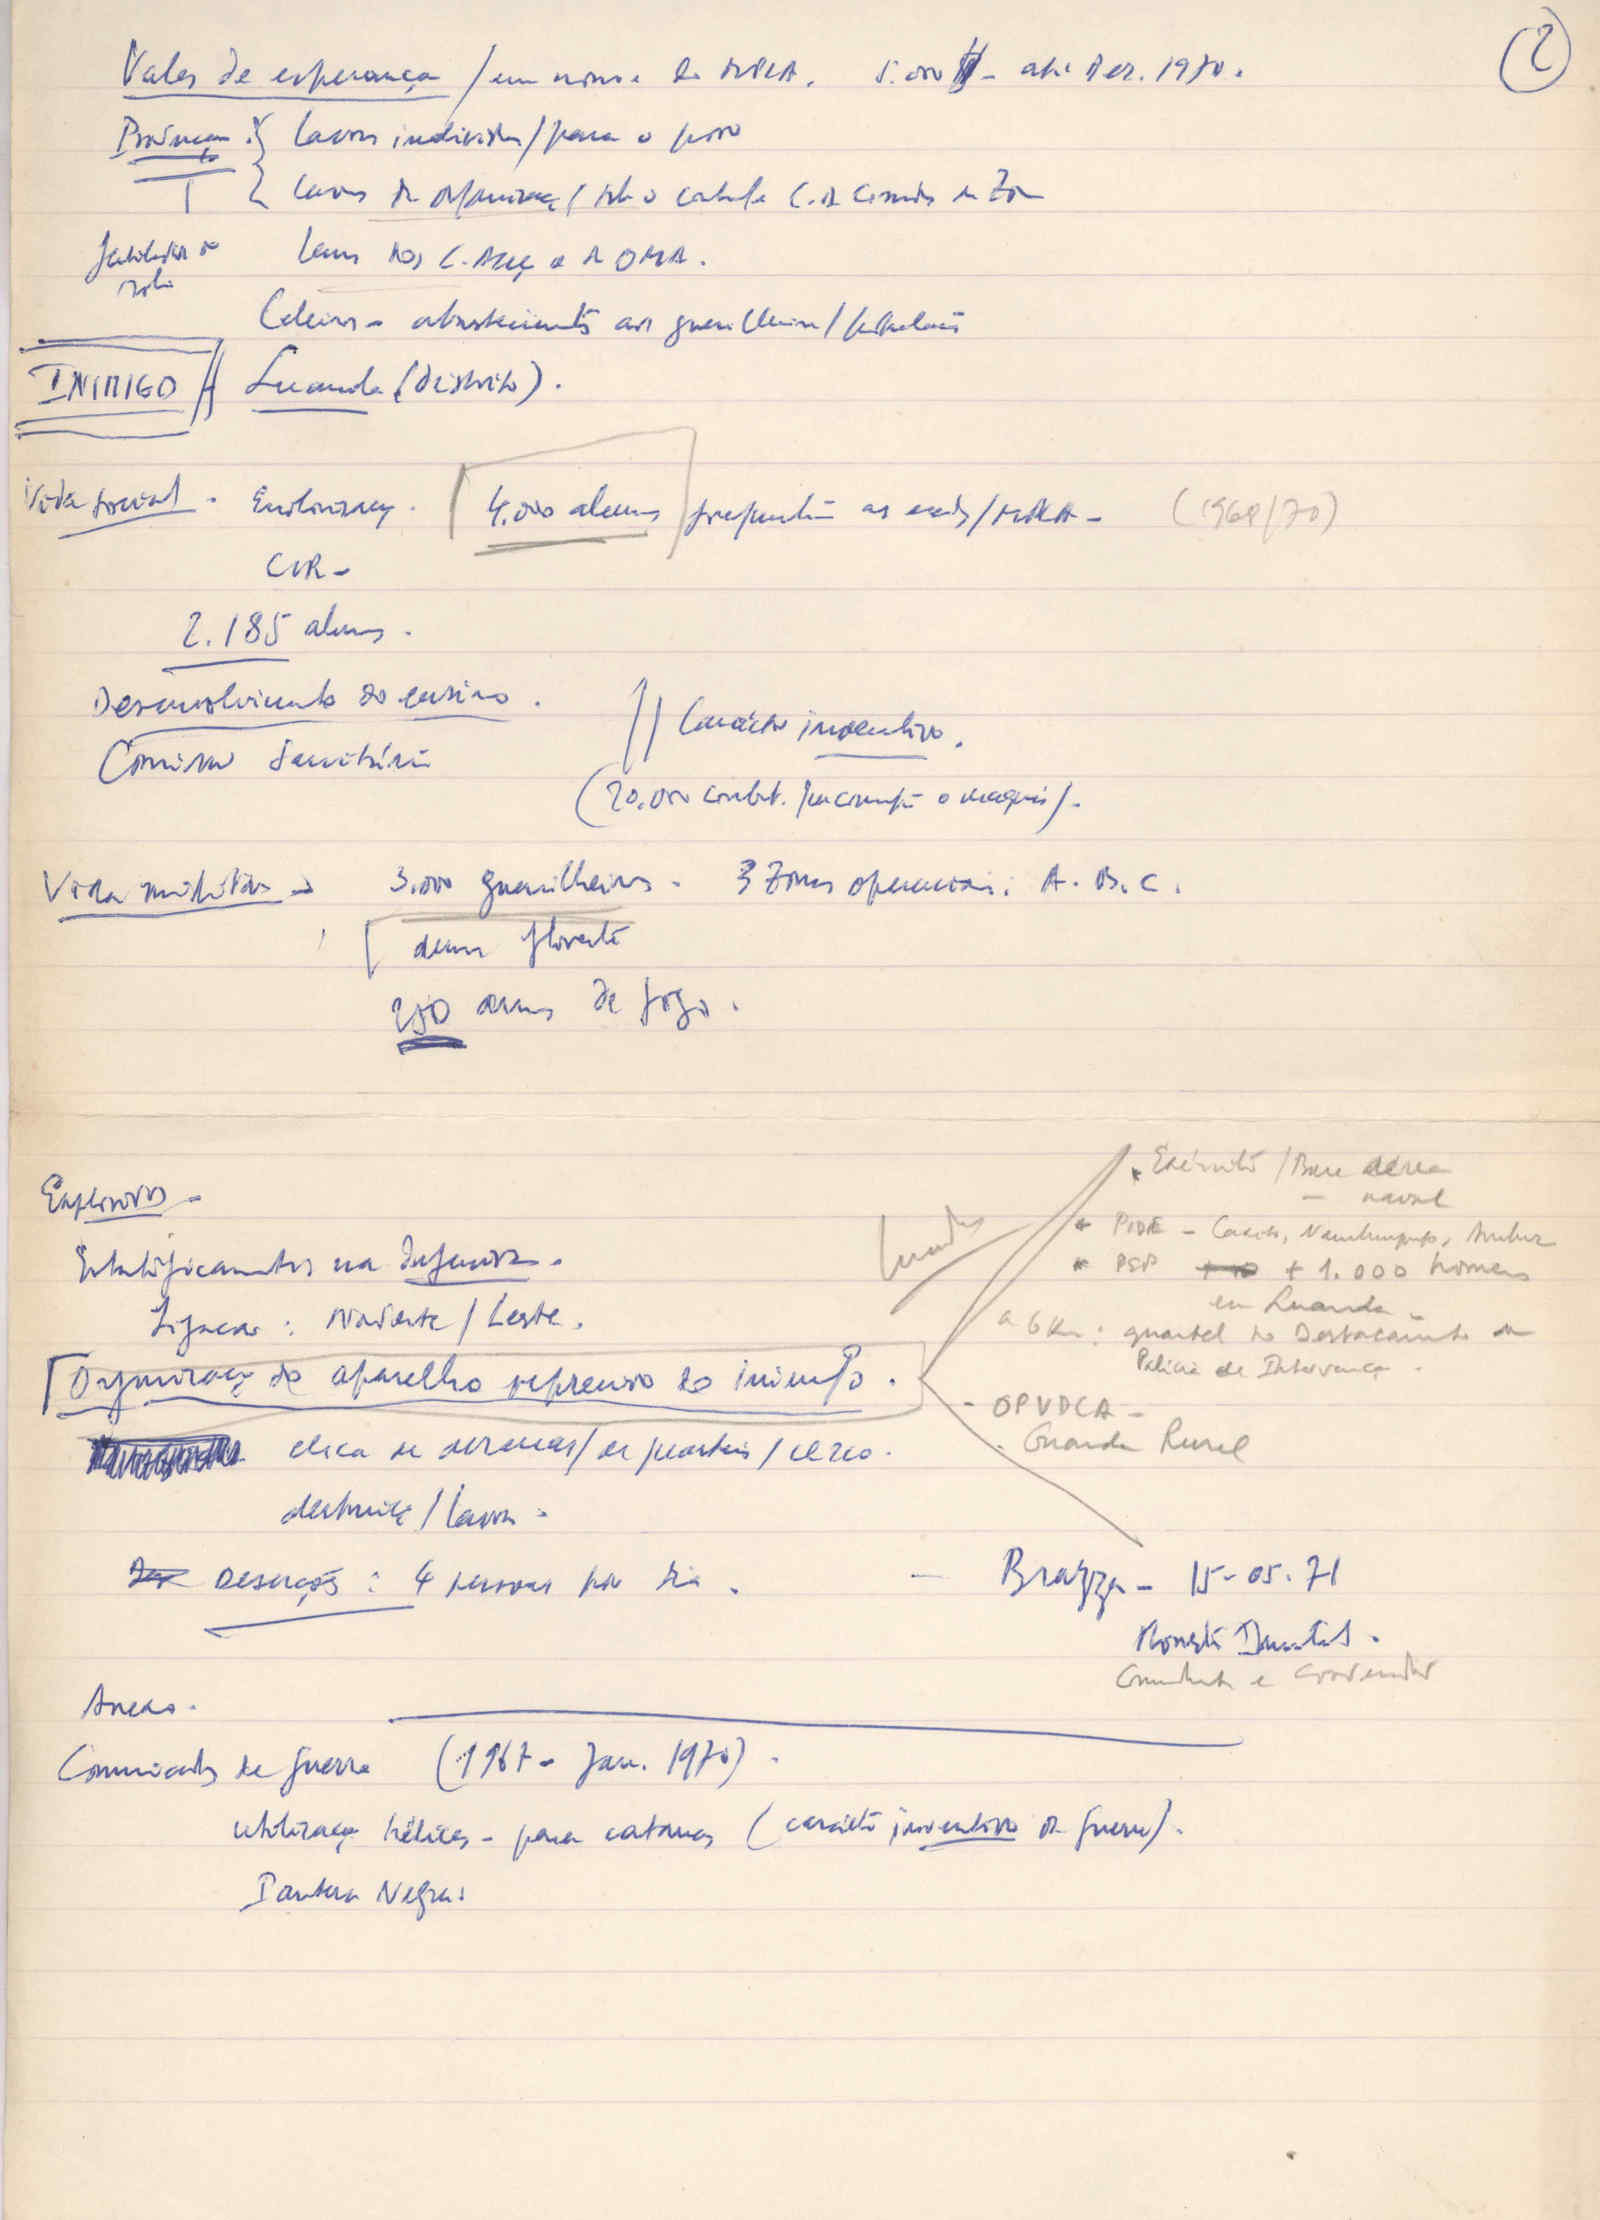 2
Vales de esperança / em nome do MPLA. 5.000 - até Dez. 1970.
Produção: lavras individuais / para o povo
lavras da organização / sob o controle C. de Comités de Zona
lavras dos C. Acção e da OMA.
Celeiros - abastecimento aos guerrilheiros / população
INIMIGO Luanda (distrito).
Vida social. Escolarização. 4.000 alunos as escolas / MPLA - (1968/70)
CIR -
2.185 alunos.
Desenvolvimento do ensino.
Carácter inventivo.
Comissão Sanitária
(20.000 combat. o maquis).
Vida militar 3.000 guerrilheiros. 3 Zonas operacionais: A. B. C.
densa floresta
250 armas de fogo.
Explosivos -
Exército / Base aérea
- naval
* PIDE - Caxito, Nambuangongo, Ambriz
Estrategicamente na defensiva.
* PSP + 1.000 homens
em Luanda.
Ligação: Nordeste / Leste.
a 6 Km: quartel do Destacamento da
Polícia de Intervenção.
Organização do aparelho repressivo do inimigo.
- OPVDCA -
- Guarda Rural
cerco.
destruição / lavras.
Deserções: 4 pessoas por dia.
- Brazza - 15-05-71
Comandante e Coordenador
Anexo.
Comunicados de guerra (1967 - Jan. 1970).
utilização hélices - para catanas (carácter inventivo da guerra).
Pantera Negra: